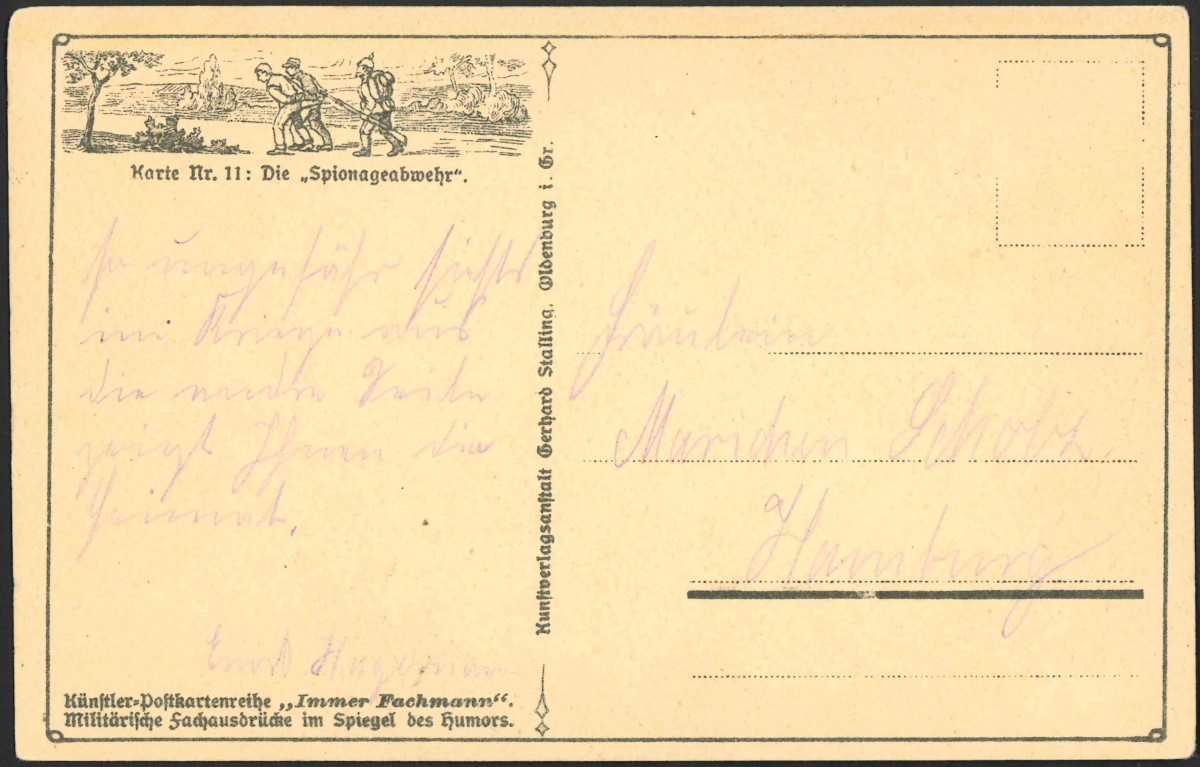 Karte Nr. 11: Die „Spionageabwehr“.
so ungefähr siehts
im Kriege aus
die andre Seite
zeigt Ihnen die
Heimat.
Hagemann
Künstler-Postkartenreihe „Immer Fachmann“.
Militärische Fachausdrücke im Spiegel des Humors.
Kunstverlagsanstalt Gerhard Stalling, Oldenburg i. Gr.
Fräulein
Mariechen Scholz,
Hamburg